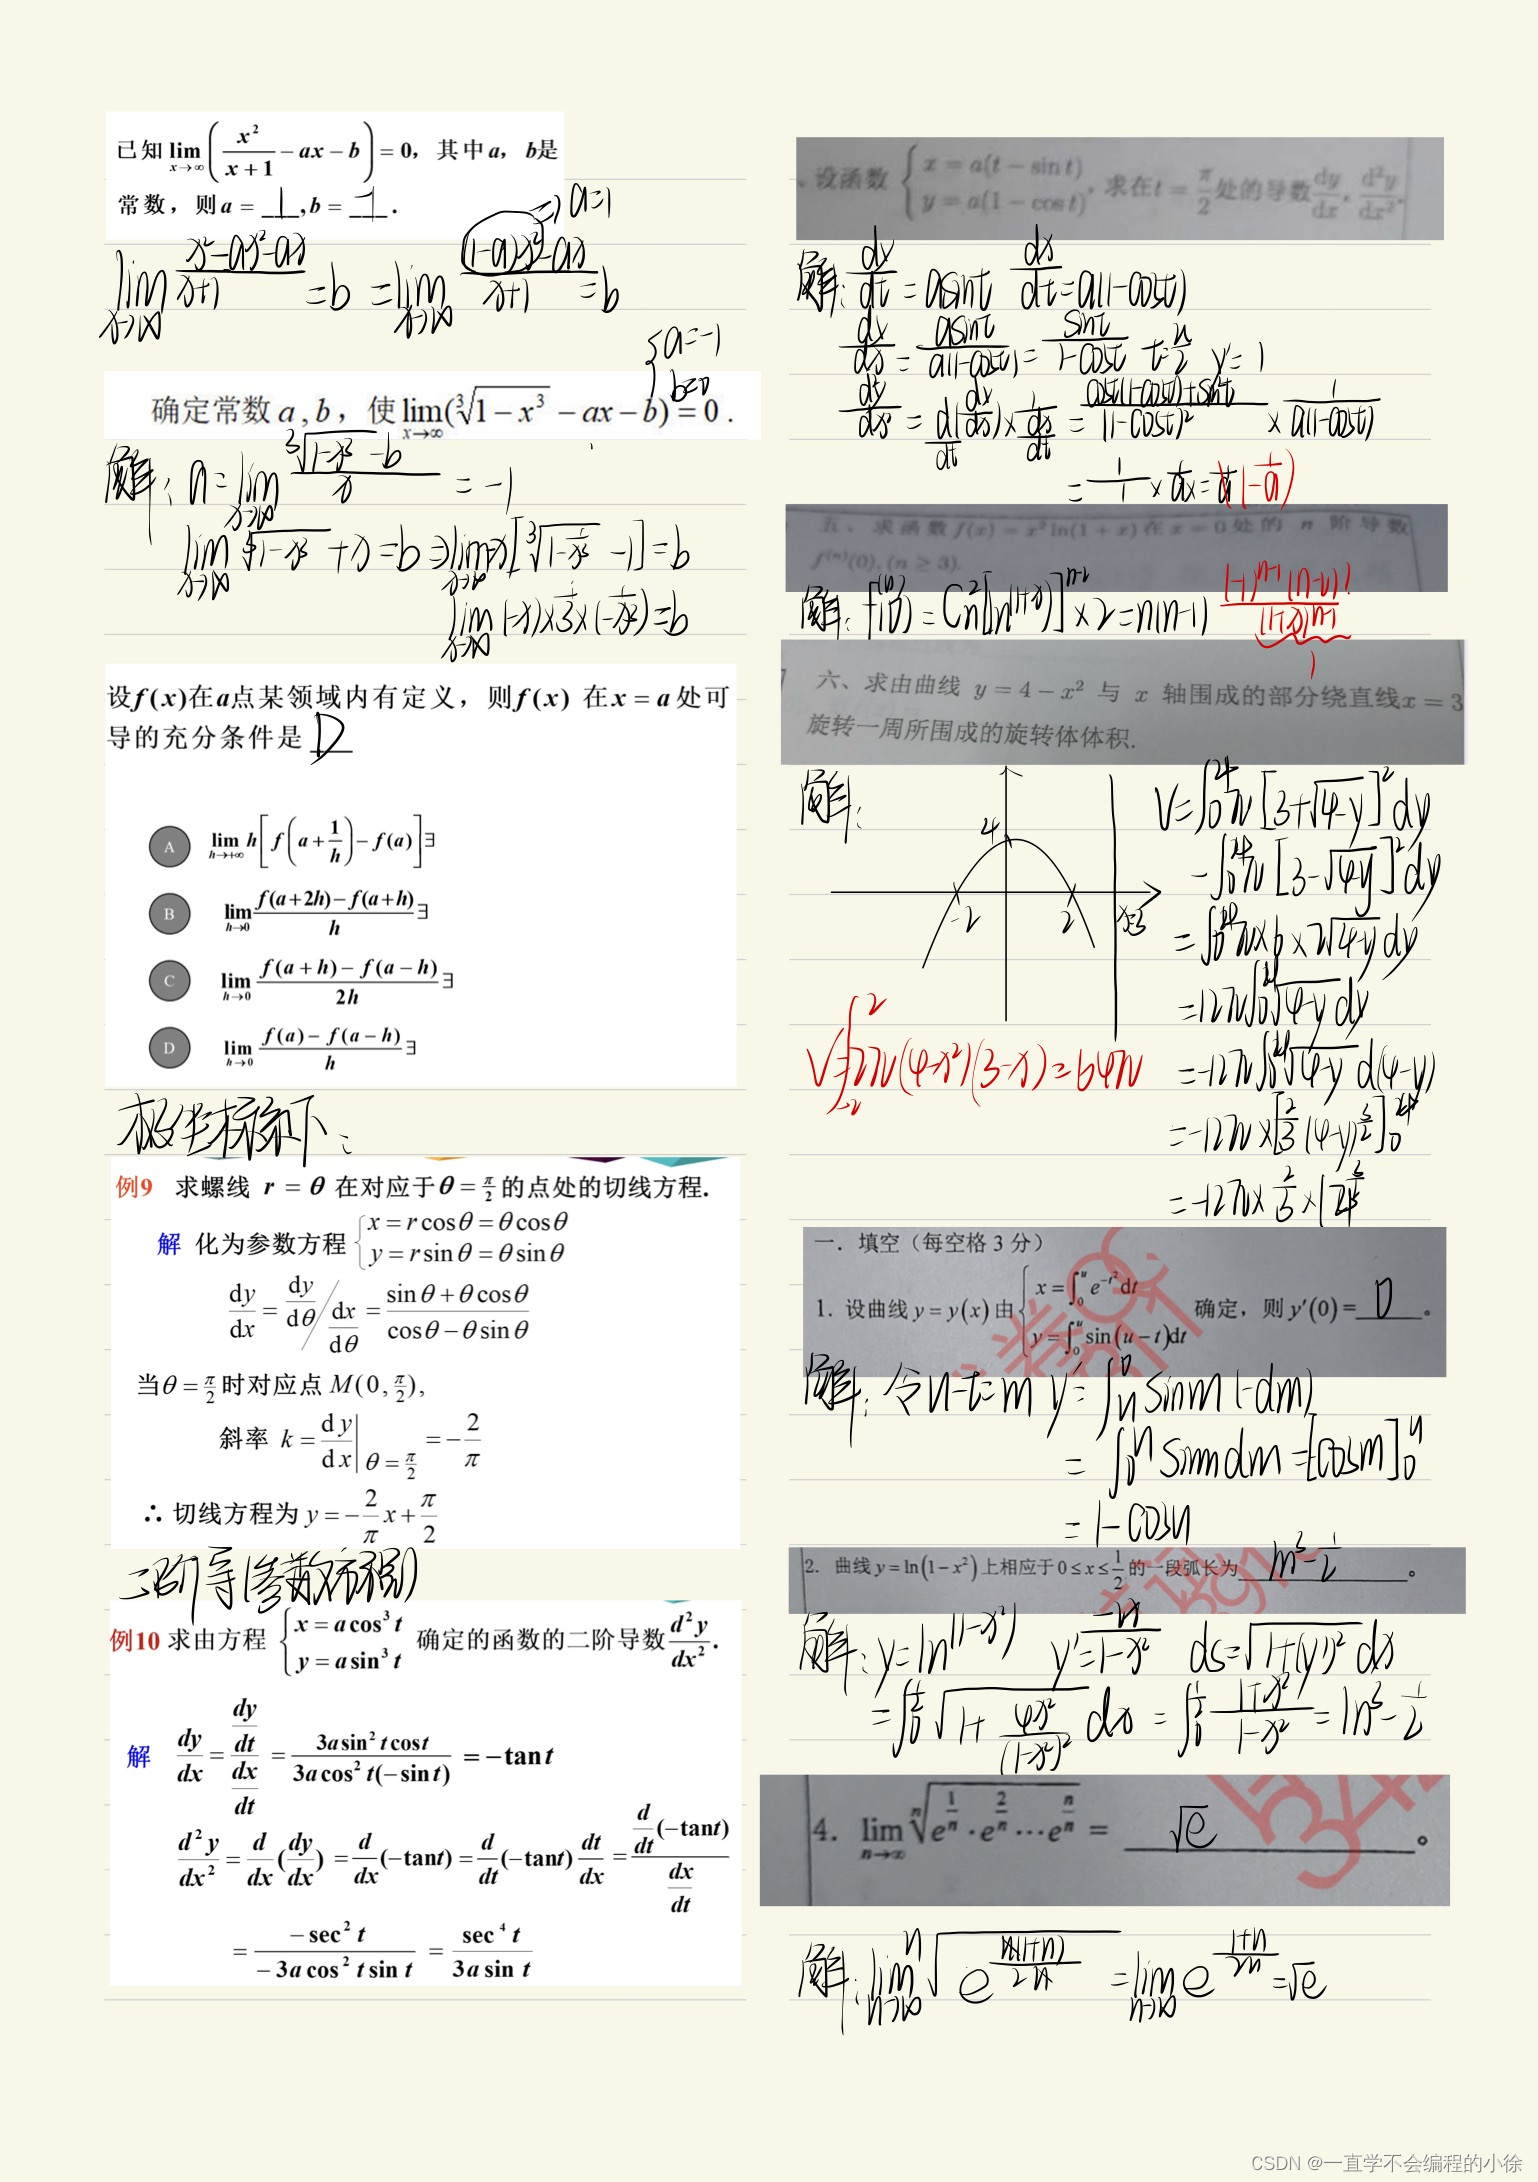 已知 lim x→∞ ( x²/(x+1) − ax − b ) = 0，其中a，b是
常数，则a = 1, b = -1.
⇒ a=1
lim x→∞ (x²-ax²-ax)/(x+1) = b = lim x→∞ ((1-a)x²-ax)/(x+1) = b
{a=-1
b=0
确定常数 a , b， 使 lim x→∞ (∛(1−x³) − ax − b) = 0 .
解: a = lim x→∞ (∛(1-x³) -b)/x = -1
lim x→∞ ∛(1-x³) + x = b ⇒ lim x→∞ -x[∛(1-1/x³) -1] = b
lim x→∞ (-x)×1/3×(-1/x³) = b
设f(x)在a点某领域内有定义，则f(x) 在x = a处可
导的充分条件是 D
A lim h→+∞ h[f(a+1/h)−f(a)]∃
B lim h→0 (f(a+2h)−f(a+h))/h ∃
C lim h→0 (f(a+h)−f(a−h))/2h ∃
D lim h→0 (f(a)−f(a−h))/h ∃
极坐标系下:
例9 求螺线 r = θ 在对应于θ = π/2 的点处的切线方程.
解 化为参数方程 { x = r cosθ = θ cosθ
y = r sinθ = θ sinθ
dy/dx = dy/dθ / dx/dθ = (sinθ + θcosθ)/(cosθ − θsinθ)
当θ = π/2 时对应点 M(0, π/2),
斜率 k = dy/dx | θ = π/2 = −2/π
∴ 切线方程为 y = −2/π x + π/2
二阶导(参数方程)
例10 求由方程 { x = a cos³ t
y = a sin³ t 确定的函数的二阶导数 d²y/dx².
解 dy/dx = (dy/dt)/(dx/dt) = 3a sin² t cos t / 3a cos² t(−sin t) = −tan t
d²y/dx² = d/dx (dy/dx) = d/dx (−tan t) = d/dt (−tan t) dt/dx = (d/dt (−tan t))/(dx/dt)
= −sec² t / −3a cos² t sin t = sec⁴ t / 3a sin t
、设函数 { x = a(t − sin t)
y = a(1 − cos t)， 求在t = π/2 处的导数 dy/dx, d²y/dx².
解: dy/dt = asint dx/dt = a(1-cost)
= asint/a(1-cost) = sint/1-cost t=π/2 y'=1
× 1/a(1-cost)
(-1/a)
五、求函数 f(x) = x² ln(1 + x) 在 x = 0 处 的 n 阶 导 数
f⁽ⁿ⁾(0), (n ≥ 3).
解: f⁽ⁿ⁾(0) = Cn²[ln(1+x)]ⁿ⁻² ×2 = n(n-1)
六、求由曲线 y = 4 − x² 与 x 轴围成的部分绕直线x = 3
旋转一周所围成的旋转体体积.
解:
4
-2 2 x=3
V=∫₀⁴π[3+√(4-y)]²dy
-∫₀⁴π[3-√(4-y)]²dy
=∫₀⁴π×6×2√(4-y)dy
=12π∫₀⁴√(4-y)dy
=-12π∫₀⁴√(4-y)d(4-y)
=-12π×[2/3(4-y)^(3/2)]₀⁴
V=∫₋₂²2π(4-x²)(3-x)=64π
一．填空（每空格 3 分）
1. 设曲线 y = y(x) 由 { x = ∫₀ᵘ e^(−t²)dt
y = ∫₀ᵘ sin(u − t)dt 确定，则 y′(0) = 0 。
解: 令u-t=m y=∫ᵤ⁰ sinm(-dm)
=∫₀ᵘ sinmdm = [-cosm]₀ᵘ
= 1-cosu
2. 曲线 y = ln(1−x²) 上相应于 0 ≤ x ≤ 1/2 的一段弧长为 ln3-1/2 。
解: y=ln(1-x²) y'=-2x/(1-x²) ds=√(1+(y')²)dx
=∫₀^(1/2)√(1+4x²/(1-x²)²)dx = ∫₀^(1/2)(1+x²)/(1-x²) = ln3-1/2
4. lim n→∞ ⁿ√(e^(1/n)·e^(2/n)···e^(n/n)) = √e 。
解: lim n→∞ ⁿ√(e^(n(1+n)/2n)) = lim n→∞ e^((1+n)/2n) = √e
CSDN @一直学不会编程的小徐